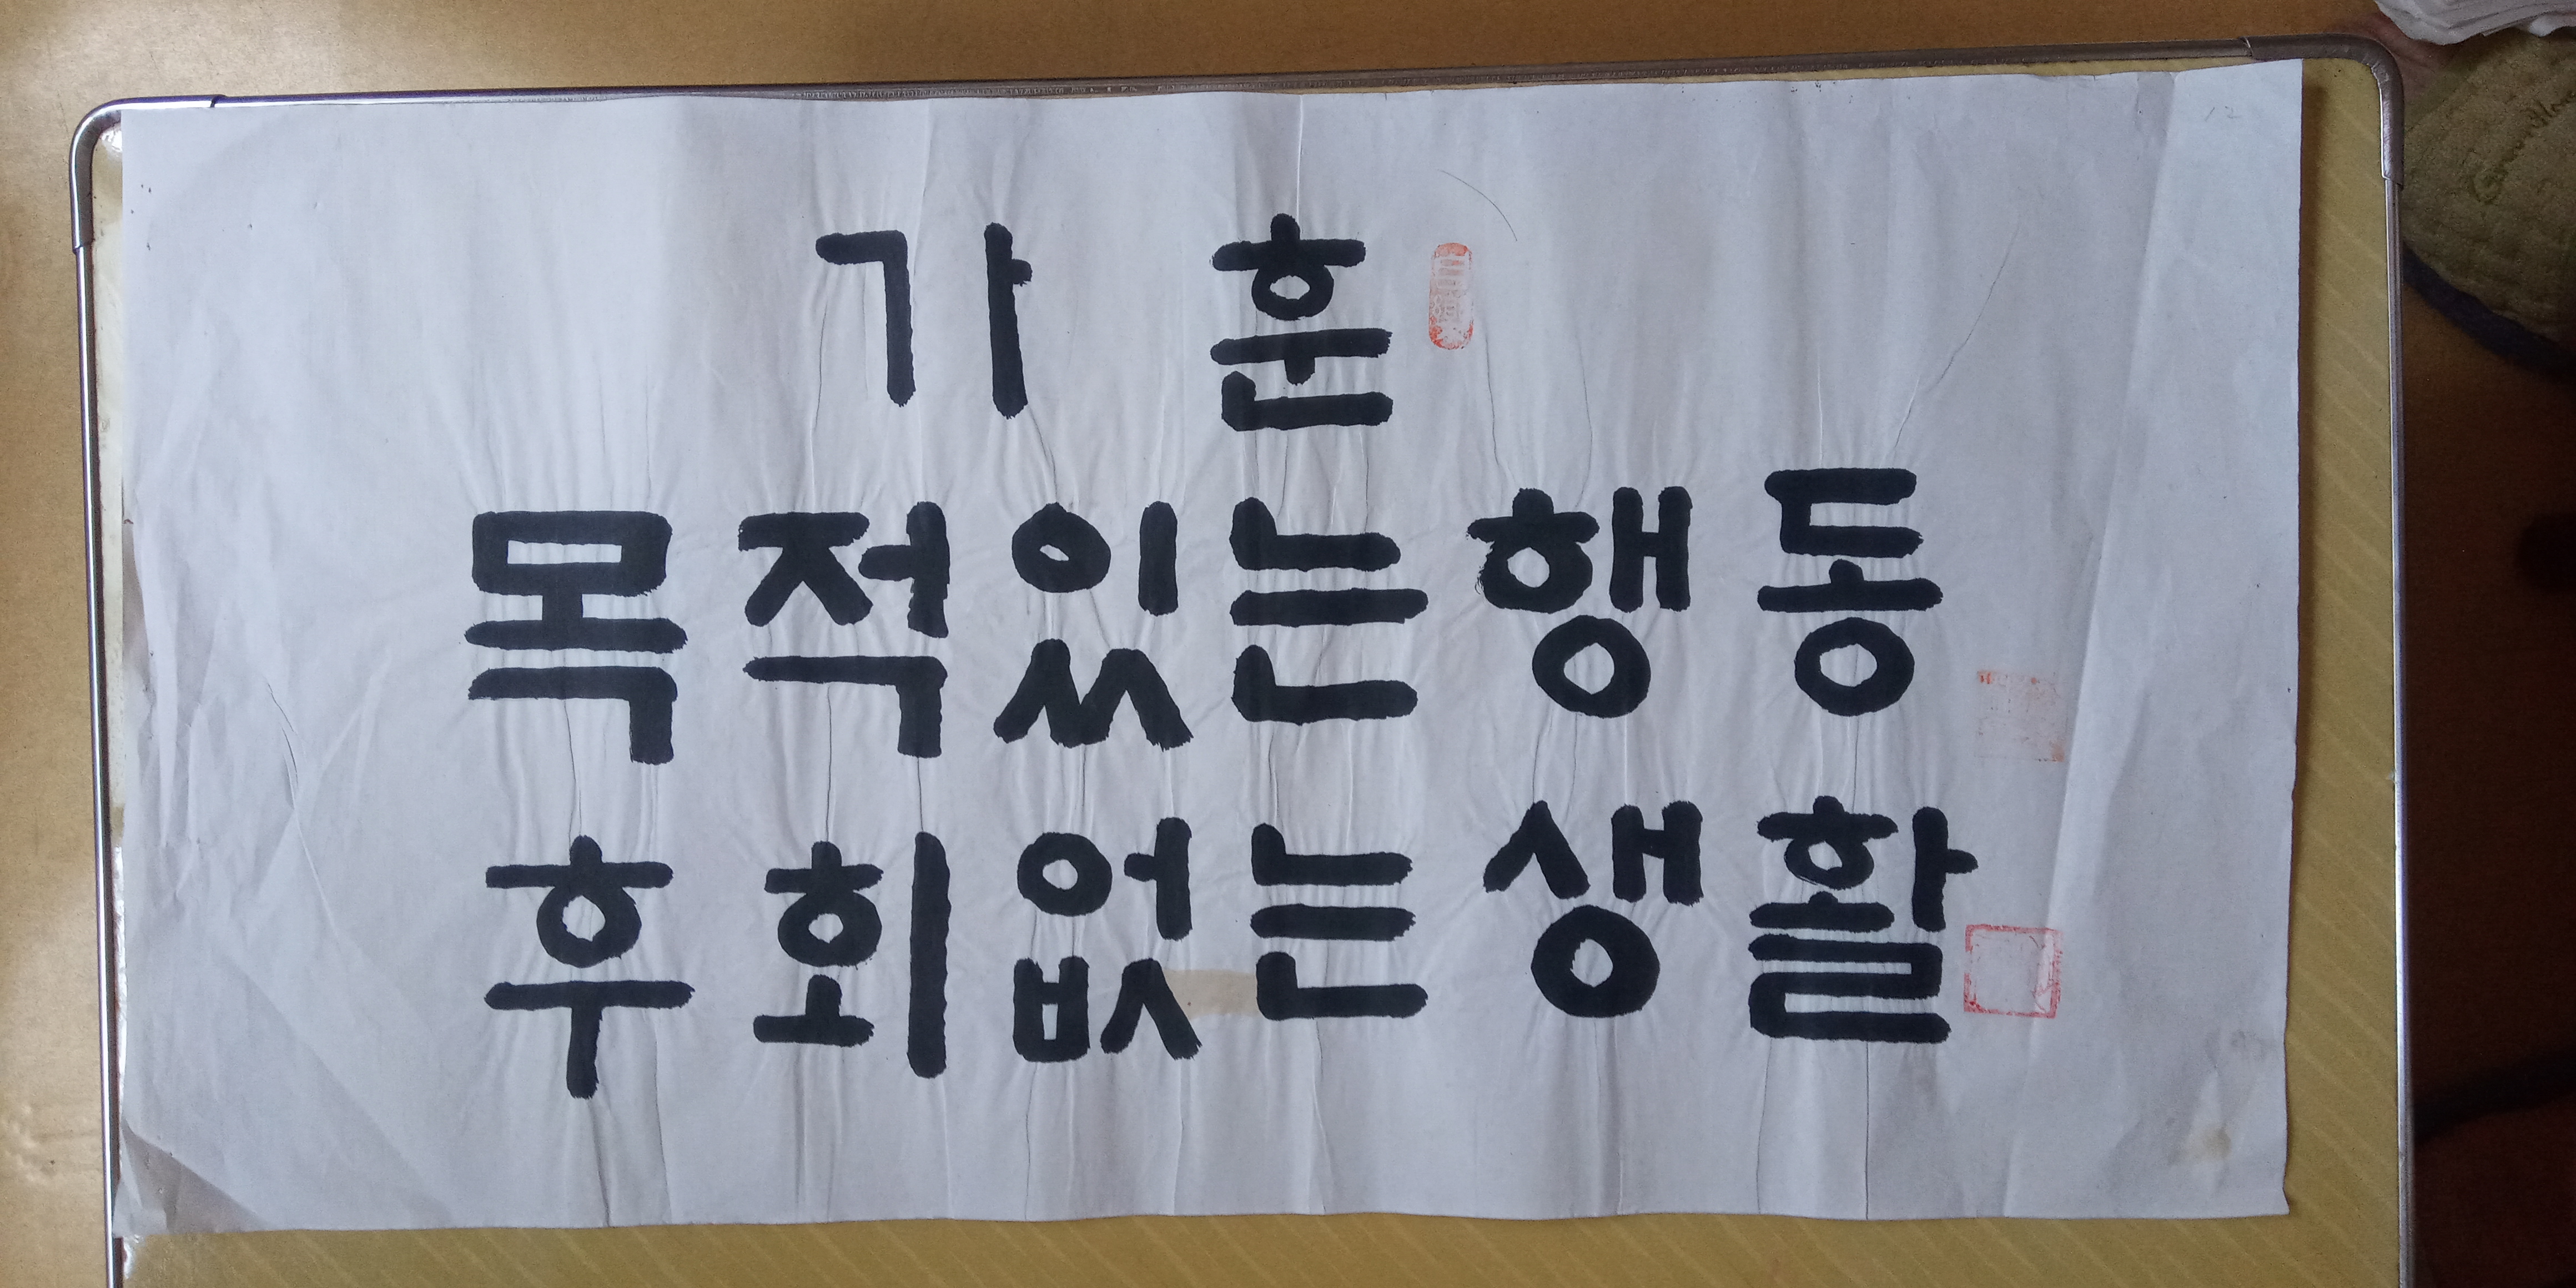 가 훈
목적있는행동
후회없는생활